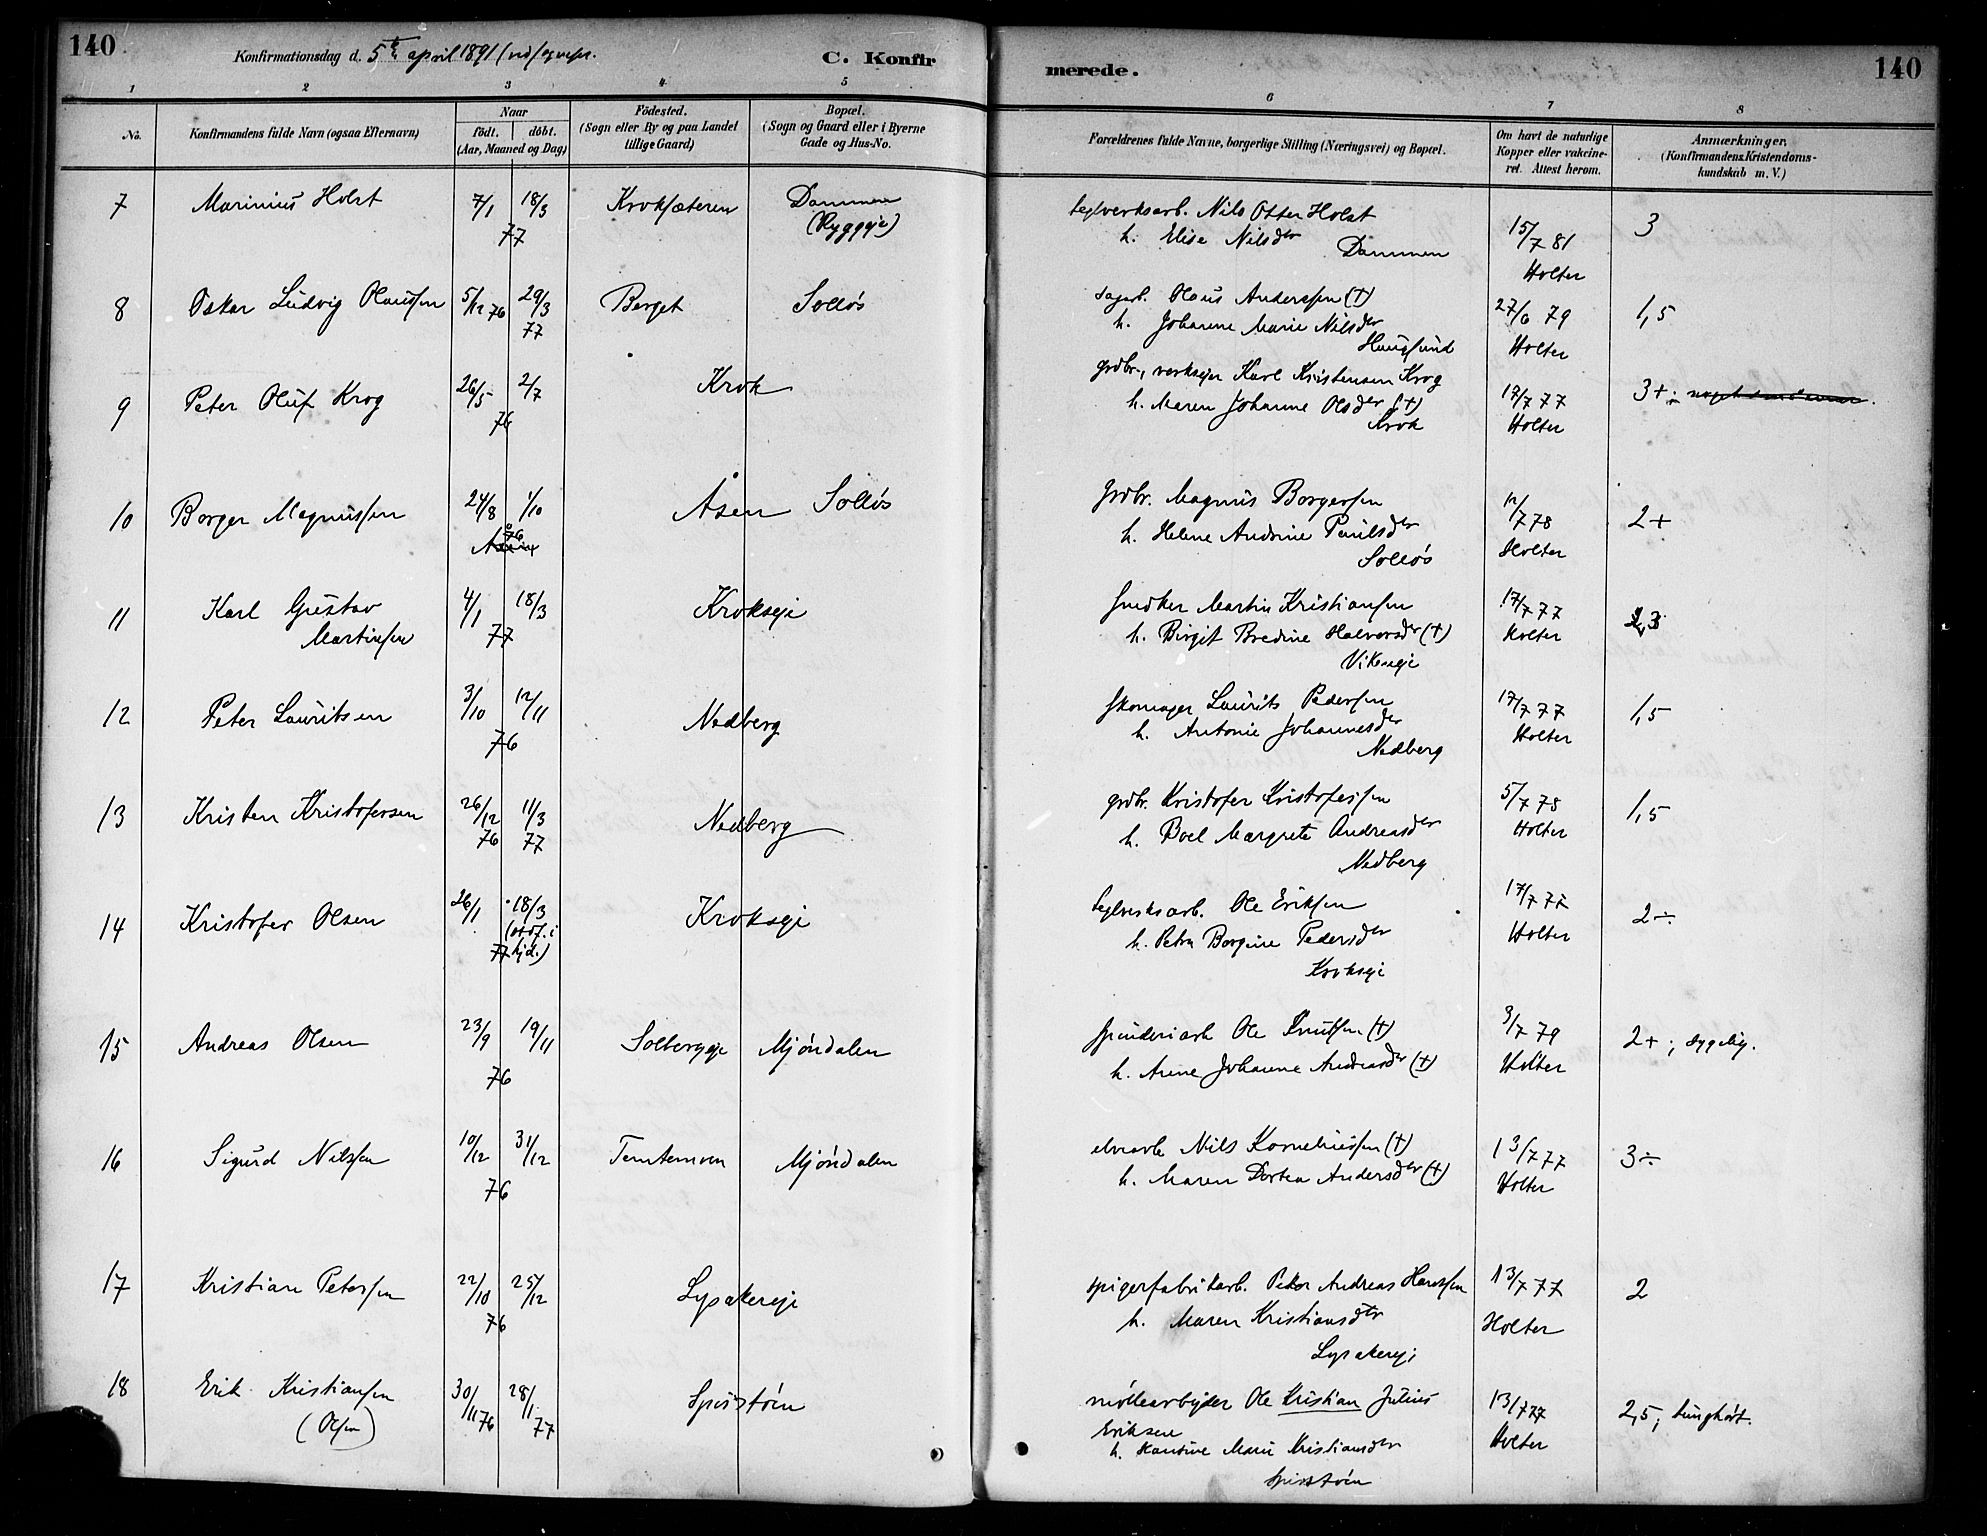 140
Konfirmationsdag d. 5te april 1891
C. Konfirmerede.
140
1 2 3 4 5 6 7 8
No.
Konfirmandens fulde Navn (ogsaa Efternavn)
Naar
födt. döbt.
(Aar, Maaned og Dag)
Födested.
(Sogn eller By og paa Landet
tillige Gaard)
Bopæl.
(Sogn og Gaard eller i Byerne
Gade og Hus-No.
Forældrenes fulde Navne, borgerlige Stilling (Næringsvei) og Bopæl.
Om havt de naturlige
Kopper eller vakcine-
ret. Attest herom.
Anmærkninger.
(Konfirmandens Kristendoms-
kundskab m. V.)
7 Marinius Holst 7/1 18/3 Kroksæteren Dammen teglverksarb. Nils Otter Holst
77 (Ryggeje) h. Elise Nilsdr 15/7 81 3
Dammen Holter
8 Oskar Ludvig Olaussen 5/12 76 29/3 Berget Solløs sagarb. Olaus Anderssen (+) 27/6 79 1,5
77 h. Johanne Marie Nilsdr
Haugsund Holter
9 Peter Oluf Krog 26/5 2/7 Krok grdbr., verksejer Karl Kristensen Krog
76 h. Maren Johanne Olsdr (+) 17/7 77 3+;
Krok Holter
10 Borger Magnussen 24/8 1/10 Åsen Solløs grdbr. Magnus Borgersen 12/7 78 2+
76 h. Helene Andrine Paulsdr
Solløs Holter
11 Karl Gustav 4/1 18/3 Krokseje snedker Martin Kristiansen 17/7 77
Martinsen 77 h. Birgit Bredine Halvorsdr (+) Holter
Vikseje
12 Peter Lauritsen 3/10 12/11 Nedberg skomager Laurits Pedersen 17/7 77 1,5
76 h. Antonie Johannesdr Holter
Nedberg
13 Kristen Kristofersen 26/12 11/3 Nedberg grdbr. Kristofer Kristofersen 5/7 78 1,5
76 77 h. Boel Margrete Andreasdr Holter
Nedberg
14 Kristofer Olsen 26/1 18/3 Krokseje teglverksarb. Ole Eriksen 17/7 77 2÷
77 h. Petra Borgine Pedersdr Holter
Krokseje
15 Andreas Olsen 23/9 19/11 Solbergeje Mjøndalen spinderiarb Ole Knutsen (+) 3/7 79 2+; sygelig.
76 h. Anne Johanne Andreasdr (+) Holter
16 Sigurd Nilssen 10/12 31/12 Temtemoen Mjøndalen elvearb Nils Korneliussen (+) 13/7 77 3÷
76 h. Maren Dortea Andersdr (+) Holter
17 Kristian Peterssen 22/10 25/12 Lysakereje spigerfabrikarb. Peter Andreas Hanssen 13/7 77 2
76 h. Maren Kristiansdr Holter
Lysakereje
18 Erik Kristiansen 30/11 76 28/1 77 Spirstøen møllearbejder Ole Kristian Julius 13/7 77 2,5; tunghørt.
(Olsen) Eriksen
h. Hansine Marie Kristiansdr Holter
Spirstøen